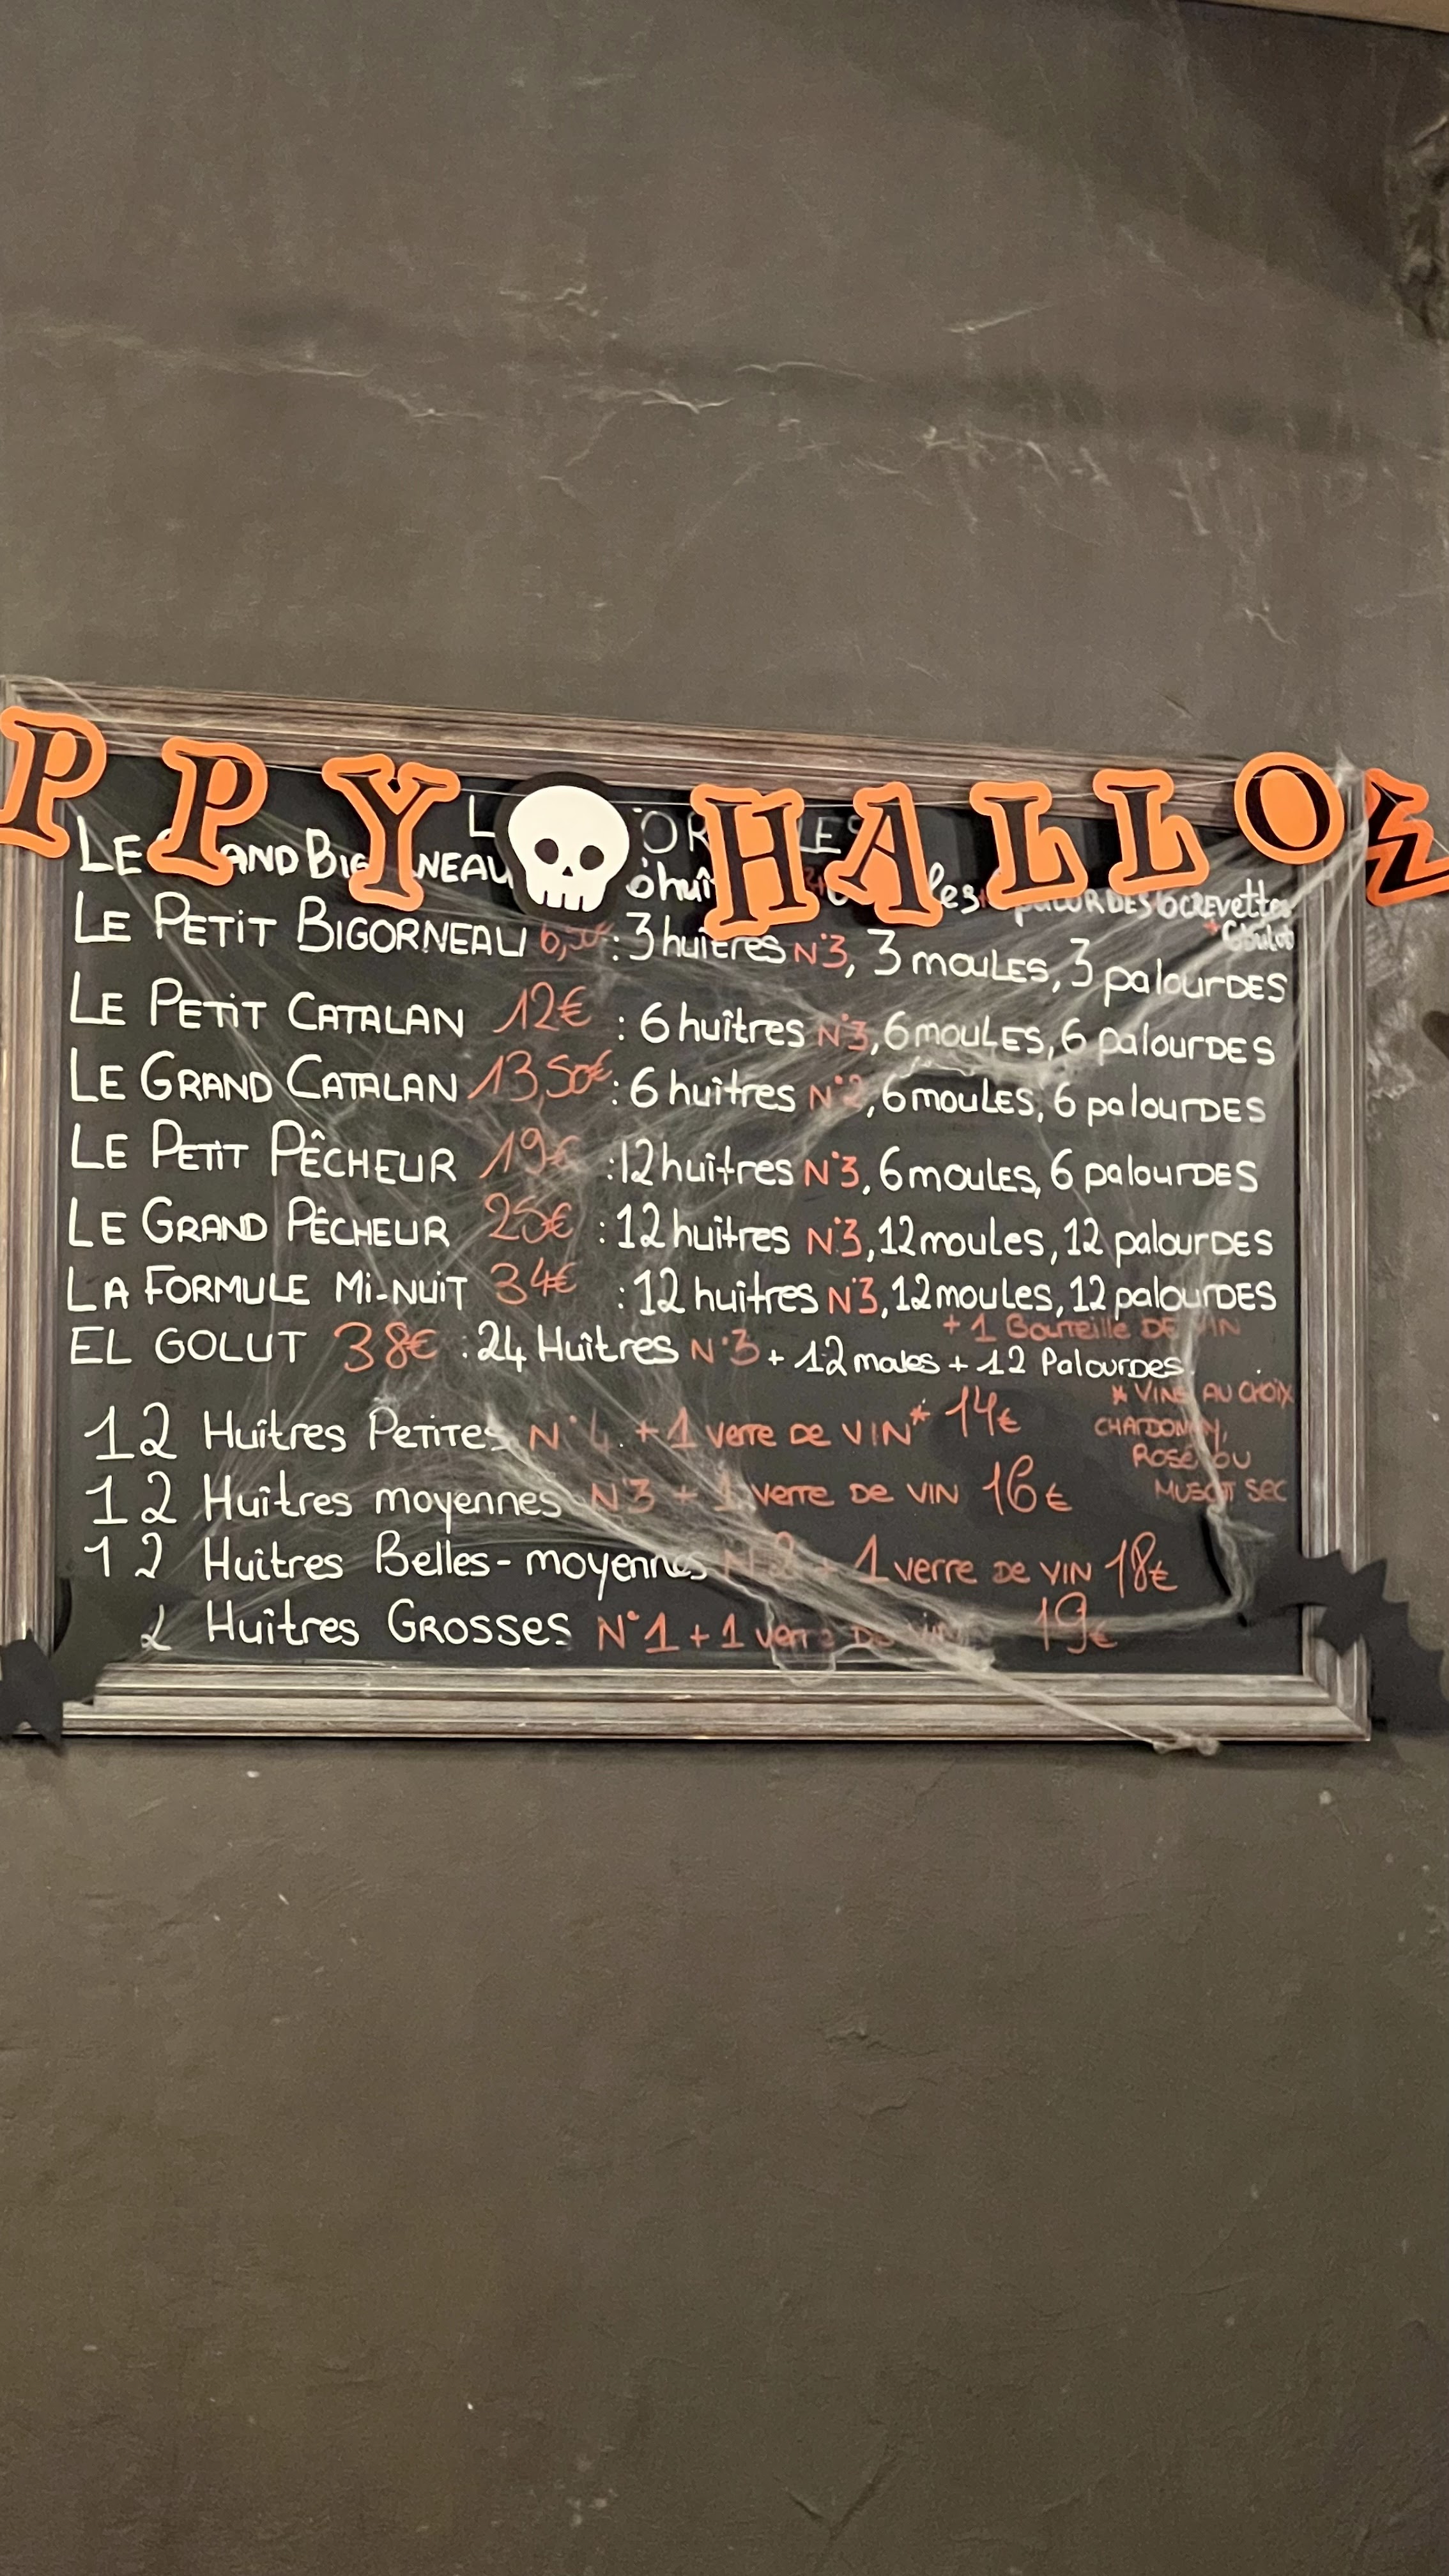 PPY HALLO
LE
LE PETIT BIGORNEAU 6,50€ : 3 huîtres N°3, 3 moules, 3 palourdes
LE PETIT CATALAN 12€ : 6 huîtres N°3, 6 moules, 6 palourdes
LE GRAND CATALAN 13,50€ : 6 huîtres N°2, 6 moules, 6 palourdes
LE PETIT PÊCHEUR 19€ : 12 huîtres N°3, 6 moules, 6 palourdes
LE GRAND PÊCHEUR 25€ : 12 huîtres N°3, 12 moules, 12 palourdes
LA FORMULE MI-NUIT 34€ : 12 huîtres N°3, 12 moules, 12 palourdes
+ 1 Bouteille DE VIN
EL GOLUT 38€ : 24 Huîtres N°3 + 12 moules + 12 Palourdes.
12 Huîtres Petites N°4 + 1 verre DE VIN* 14€
* VINS AU CHOIX
CHARDONNAY,
ROSÉ OU
MUSCAT SEC
12 Huîtres moyennes N°3 + 1 verre DE VIN 16€
12 Huîtres Belles-moyennes N°2 + 1 verre DE VIN 18€
2 Huîtres GROSSES N°1 + 1 verre DE VIN 19€